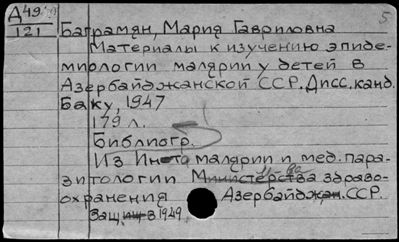 Д49
121
5
Баграмян, Мария Гавриловна
Материалы к изучению эпиде-
миологии малярии у детей в
Азербайджанской ССР. Дисс. канд.
Баку, 1947
179 л.
Библиогр.
Из Инст малярии и мед. пара-
зитологии Министерства здраво-
охранения Азербайджан. ССР.
Защ в 1949.